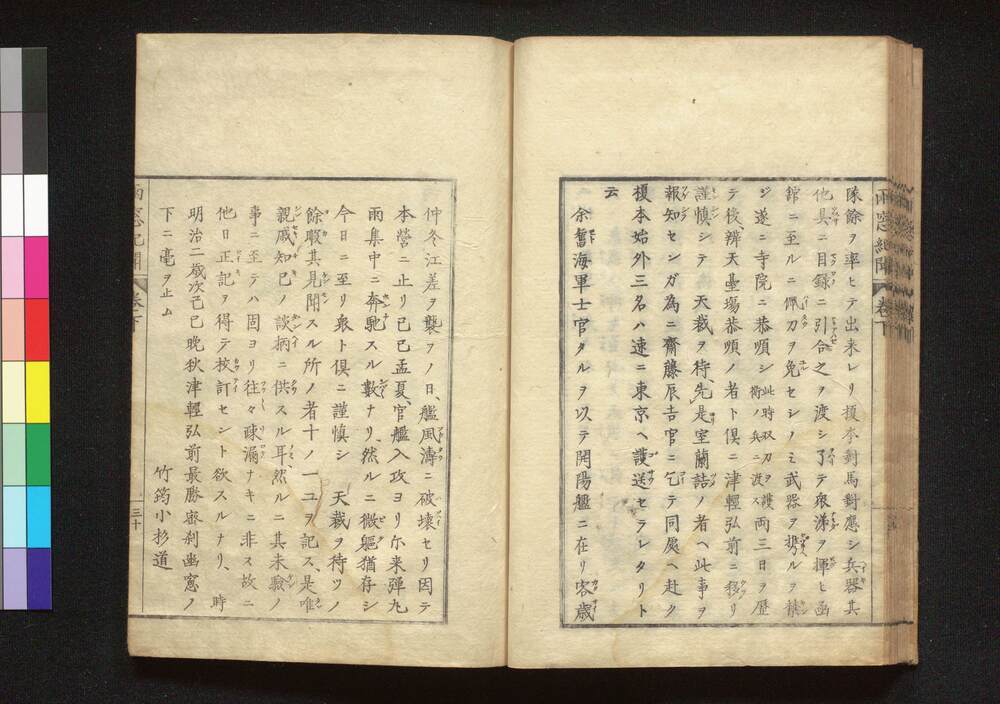 雨窓紀聞 巻下
隊餘ヲ率ヒテ出来レリ榎本對馬對應シ兵器其
他具ニ目録ニ引合之ヲ渡シ了テ衆涕ヲ揮ヒ函
舘ニ至ルニ佩刀ヲ免セシノミ武器ヲ携ルヲ禁
ジ遂ニ寺院ニ恭順シ此時双刀ヲ護衛ノ兵ニ渡ス両三日ヲ歴
テ後、辨天臺場恭順ノ者ト倶ニ津輕弘前ニ移リ
謹慎シテ天裁ヲ待、先是室蘭詰ノ者ヘ此事ヲ
報知センガ為ニ齋藤辰吉官ニ乞テ同處ヘ赴ク
榎本始外三名ハ速ニ東京ヘ護送セラレタリト
云
余舊海軍士官タルヲ以テ開陽艦ニ在リ客歳
仲冬江差ヲ襲フノ日、艦風濤ニ破壊セリ因テ
本營ニ止リ己巳孟夏、官艦入攻ヨリ尓来弾丸
雨集中ニ奔馳スル數ナリ、然ルニ微軀猶存シ
今日ニ至リ衆ト倶ニ謹慎シ 天裁ヲ待ツノ
餘暇其見聞スル所ノ者十ノ一ユヲ記ス、是唯
親戚知己ノ談柄ニ供スル耳、然ルニ其未驗ノ
事ニ至テハ固ヨリ往々疎漏ナキニ非ス故ニ
他日正記ヲ得テ校訂セント欲スルナリ、時
明治二歳次己巳晩秋津輕弘前最勝密刹幽窓ノ
下ニ毫ヲ止ム
竹筠小杉道
雨窓紀聞 巻下 三十